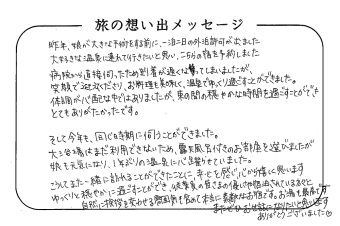 旅の想い出メッセージ
昨年、娘が大きな手術をする前に、一泊二日の外泊許可が出ました
大好きな温泉に連れて行きたいと思い、こちらの宿を予約しました
病院から直接伺ったため到着が遅くなってしまいましたが、
笑顔で迎えくださり、お料理も美味しく、温泉でゆっくり過ごすことができました。
体調が心配な中ではありましたが、束の間の穏やかな時間を過ごすことができ、
とてもありがたかったです。
そして今年も、同じ時期に伺うことができました。
大浴場はまだ利用できないため、露天風呂付きのお部屋を選びましたが
娘も元気になり、1年ぶりの温泉に
こうしてまた一緒に訪れることができたことに、幸せと感じ心から嬉しく思います
ゆっくりと穏やかに過ごすことができ、従業員の皆さまの優しさや
自然に挨拶を交わせる雰囲気も含めて本当に素敵なお宿です。お湯も最高です
またぜひお世話になりたいと思います
ありがとうございました